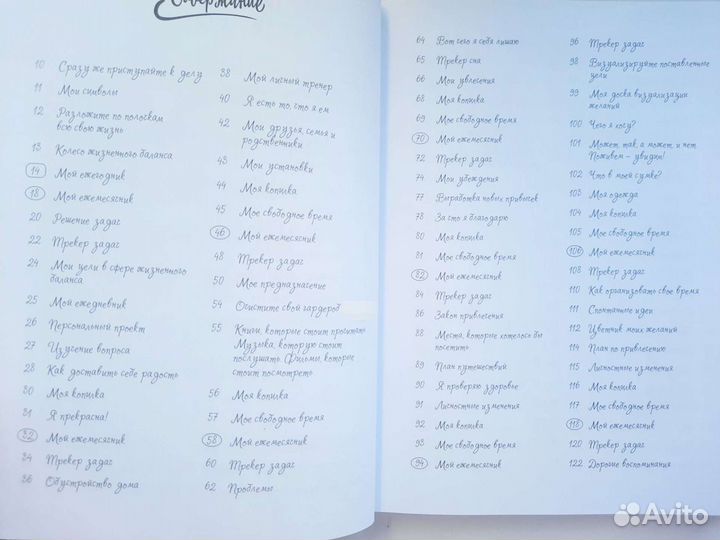 Содержание
10 Сразу же приступайте к делу
11 Мои символы
12 Разложите по полоскам
всю свою жизнь
13 Колесо жизненного баланса
14 Мой ежегодник
18 Мой ежемесячник
20 Решение задач
22 Трекер задач
24 Мои цели в сфере жизненного
баланса
25 Мой ежедневник
26 Персональный проект
27 Изучение вопроса
28 Как доставить себе радость
30 Моя копилка
31 Я прекрасна!
32 Мой ежемесячник
34 Трекер задач
36 Обустройство дома
38 Мой личный тренер
40 Я есть то, что я ем
42 Мои друзья, семья и
родственники
43 Мои установки
44 Моя копилка
45 Мое свободное время
46 Мой ежемесячник
48 Трекер задач
50 Мое предназначение
54 Очистите свой гардероб
55 Книги, которые стоит прочитать
Музыка, которую стоит
послушать. Фильмы, которые
стоит посмотреть
56 Моя копилка
57 Мое свободное время
58 Мой ежемесячник
60 Трекер задач
62 Проблемы
64 Вот чего я себя лишаю
65 Трекер сна
66 Мои увлечения
68 Моя копилка
69 Мое свободное время
70 Мой ежемесячник
72 Трекер задач
74 Мои убеждения
77 Выработка новых привычек
78 За что я благодарю
80 Моя копилка
81 Мое свободное время
82 Мой ежемесячник
84 Трекер задач
86 Закон привлечения
88 Места, которые хотелось бы
посетить
89 План путешествий
90 Я проверяю здоровье
91 Личностные изменения
92 Моя копилка
93 Мое свободное время
94 Мой ежемесячник
96 Трекер задач
98 Визуализируйте поставленные
цели
99 Моя доска визуализации
желаний
100 Чего я хочу?
101 Может, так, а может, и нет.
Поживем – увидим!
102 Что в моей сумке?
103 Моя одежда
104 Моя копилка
105 Мое свободное время
106 Мой ежемесячник
108 Трекер задач
110 Как организовать свое время
111 Спонтанные идеи
112 Цветник моих желаний
114 План по привлечению
115 Личностные изменения
116 Моя копилка
117 Мое свободное время
118 Мой ежемесячник
120 Трекер задач
122 Дорогие воспоминания
Avito